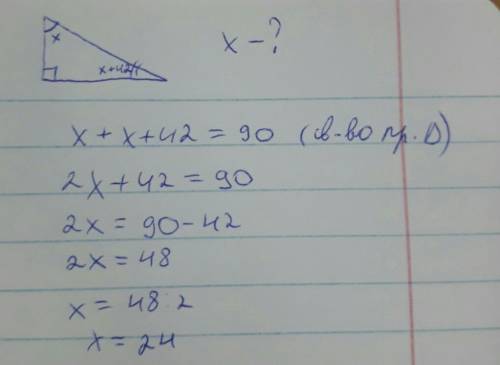 x
x+42
x - ?
x + x + 42 = 90 (св-во пр. Δ)
2x + 42 = 90
2x = 90 - 42
2x = 48
x = 48 2
x = 24